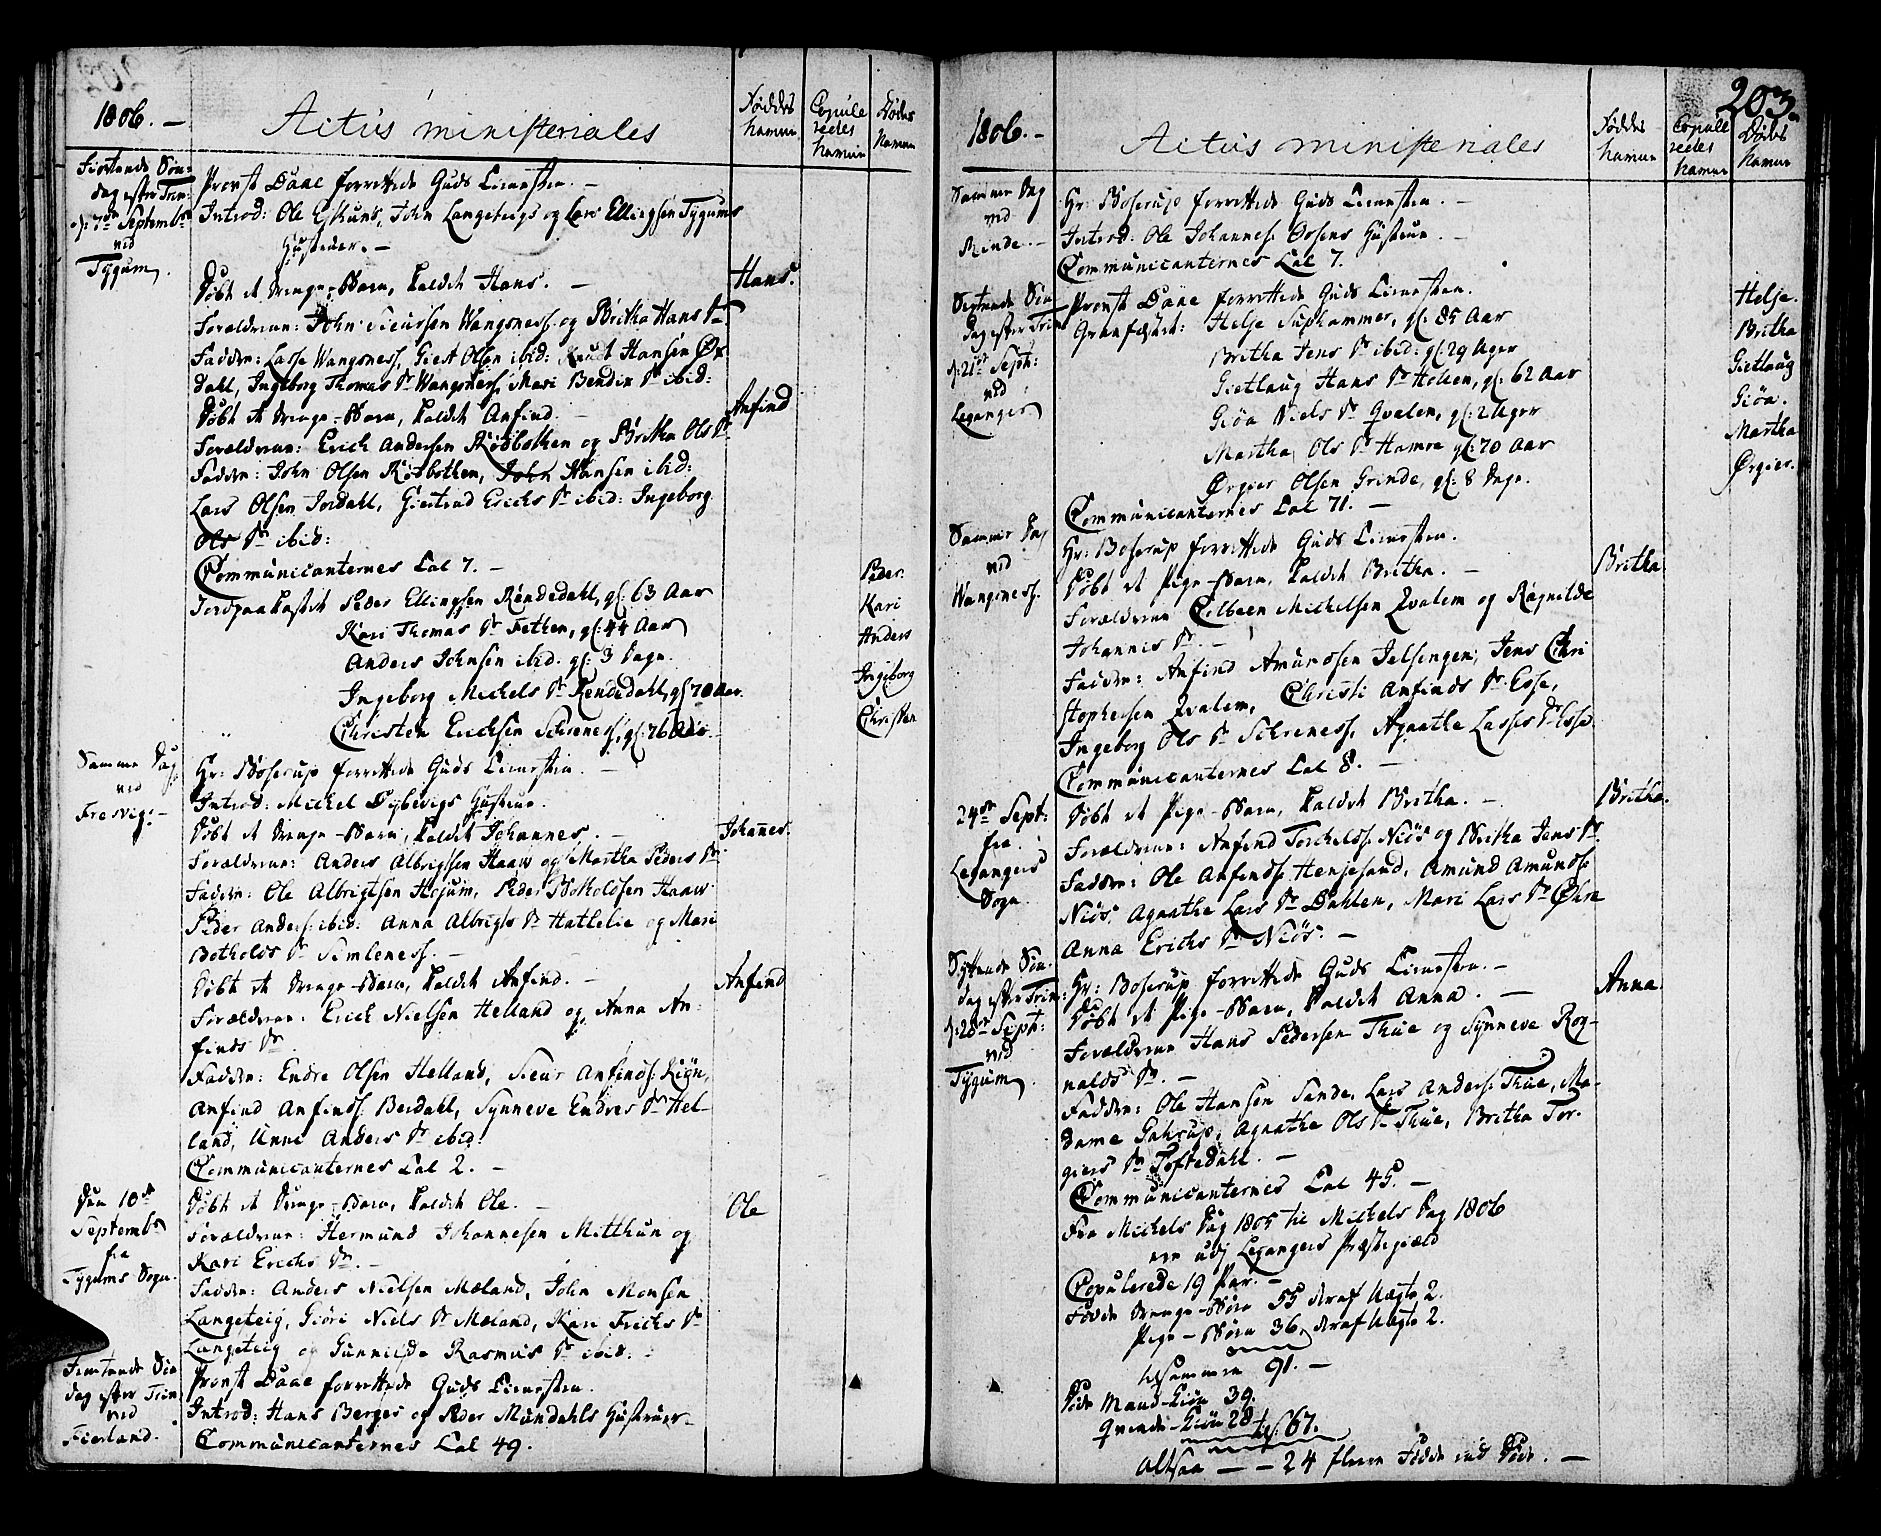 1806. —
Actus ministeriales
Føddes
Navne
Copule
redes
Navne
Dødes
Navne
Fiortende Søn-
dag efter Trin:
d: 7de Septembr
ved
Tygum.
Provst Daae forrettede Guds Tieneste. —
Introd: Ole Eskuns, John Langeteigs og Lars Ellingsen Tygums
Hustruer. —
Døbt et Drenge-Barn, kaldet Hans. —
Hans.
Forældrene: John Siursen Wangsness og Britha Hans Dr
Faddere: Lasse Wangsness, Giest Olsen ibid: Knud Hansen Øx-
dahl, Ingeborg Thomas Dr Wangsness, Mari Bendix Dr ibid:
Døbt et Drenge-Barn, kaldet Anfind. —
Anfind
Forældrene: Erich Andersen Rødbotten og Britha Ols Dr
Faddere: John Olsen Rødbotten, John Hansen ibid:
Lars Olsen Jordahl, Giertrud Erichs Dr ibid: Ingeborg
Ols Dr ibid:
Communicanternes Tal 7. —
Jordpaakastet Peder Ellingsen Rendedahl, gl: 63 Aar
Peder.
Kari Thomas Dr Fethen, gl: 44 Aar
Kari
Anders Johnsen ibid. gl: 3 Dage.
Anders
Ingeborg Michels Dr Rendedahl, gl: 70 Aar.
Ingeborg
Christen Erichsen Schreness, gl: 76 Aar. —
Christen
Samme Dag
ved
Fresvig: —
Hr: Boserup forrettede Guds Tieneste. —
Introd: Michel Dybevigs Hustrue.
Døbt et Drenge-Barn, kaldet Johannes. —
Johannes.
Forældrene: Anders Albrigtsen Haaw og Martha Peders Dr
Faddere: Ole Albrigtsen Hojum, Peder Botholdsen Haaw
Peder Anders: ibid: Anna Albrigts Dr Hattelie og Mari
Botholds Dr Simleness. —
Døbt et Drenge-Barn, kaldet Anfind. —
Anfind
Forældrene: Erich Nielsen Helland og Anna An-
finds Dr.
Faddere: Endre Olsen Helland, Siur Anfinds: Kiøn,
Anfind Anfinds: Berdahl, Synneve Endres Dr Hel-
land, Anne Anders Dr ibid:
Communicanternes Tal 2. —
Den 10de
Septembr
fra
Tygums Sogn.
Døbt et Drenge-Barn, kaldet Ole. —
Ole
Forældrene: Hermund Johannesen Mitthun og
Kari Erichs Dr. —
Faddere: Anders Nielsen Mæland, John Monsen
Langeteig, Giøri Niels Dr Mæland, Kari Erichs Dr
Langeteig og Gunnilde Rasmus Dr ibid: —
Femtende Søn
dag efter Trin
ved
Fierland.
Provst Daae forrettede Guds Tieneste.
Introd: Hans Berges og Peder Mundahls Hustruer. —
Communicanternes Tal 49.
203.
1806. —
Actus ministeriales
Føddes
Navne
Copule
redes
Navne
Dødes
Navne
Samme Dag
ved
Rinde. —
Hr: Boserup forrettede Guds Tieneste. —
Introd: Ole Johannes: Ossens Hustrue. —
Communicanternes Tal 7.
Sextende Søn
dag efter Trin
d: 21de Septb:
ved
Leganger
Provst Daae forrettede Guds Tieneste.
Gravfæstet: Helje Suphammer, gl: 85 Aar
Helje.
Britha Jens Dr ibid: gl: 29 Uger
Britha
Giertlaug Hans Dr Holsen, gl: 62 Aar
Giertlaug
Giøa Niels Dr Qvalen, gl: 2 Uger
Giøa.
Martha Ols Dr Hamre gl: 70 Aar
Martha
Ørgier Olsen Grinde, gl: 8 Dage.
Ørgier.
Communicanternes Tal 71. —
Samme Dag
ved
Wangsness.
Hr: Boserup forrettede Guds Tieneste.
Døbt et Pige-Barn, kaldet Britha. —
Britha
Forældrene Colbeen Michelsen Qvalem og Ragnilde
Johannis Dr. —
Faddere: Anfind Amundsen Jelsengen, Jens Chri
stophersen Qvalem, Christi Anfinds Dr Esse,
Ingeborg Ols Dr Schreness, Agaathe Lasses Dr Esse
Communicanternes Tal 8. —
24de Sept:
fra
Legangers
Sogn
Døbt et Pige-Barn, kaldet Britha. —
Britha.
Forældrene: Anfind Torchelds: Niøs og Britha Jens Dr
Faddere: Ole Anfinds: Henjesand, Amund Amunds:
Niøs Agaathe Lars Dr Dahlen, Mari Lars Dr Øhrn
Anna Erichs Dr Niøs. —
Syttende Søn-
dag efter Trin:
d: 28de Septb:
ved
Tygum.
Hr: Boserup forrettede Guds Tieneste. —
Døbt et Pige-Barn, kaldet Anna. —
Anna
Forældrene Hans Pedersen Thue og Synneve Rog-
nalds Dr. —
Faddere: Ole Hansen Sande, Lars Anders: Thue, Ma-
dame Gahrup, Agaathe Ols Dr Thue, Britha Tor-
giers Dr Toftedahl. —
Communicanternes Tal 45. —
Fra Michels Dag 1805 til Michels Dag 1806
ere udj Legangers Præstegield
Copulerede 19 Par. —
Fødde Drenge-Børn 55 deraf Uægte 2.
Pige-Børn 36, deraf Uægte 2.
tilsammen 91. —
Døde Mand-Kiøn 39.
Qvinde-Kiøn 28 tils: 67.
Altsaa — — 24 flere Fødde end Døde. —